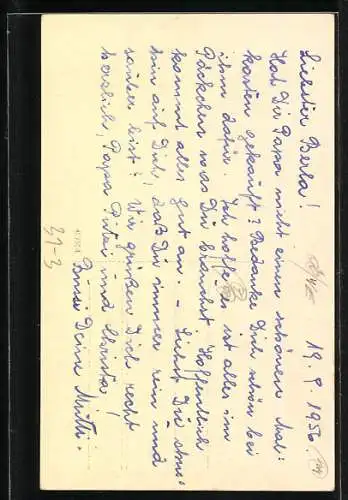 19. 9. 1956.
Liebster Berla!
Hat Dir Papa nicht einen schönen Mal=
kasten gekauft? Bedanke Dich schön bei
ihm dafür. Ich hoffe es ist alles im
Päckchen was Du brauchst. Hoffentlich
kommt alles gut an. – Siehst Du
bin auf Dich, daß Du immer rein und
sauber bist? Wir grüßen Dich recht
herzlich, Papa und Christa,
Bussi Deine Mutti.
31-3